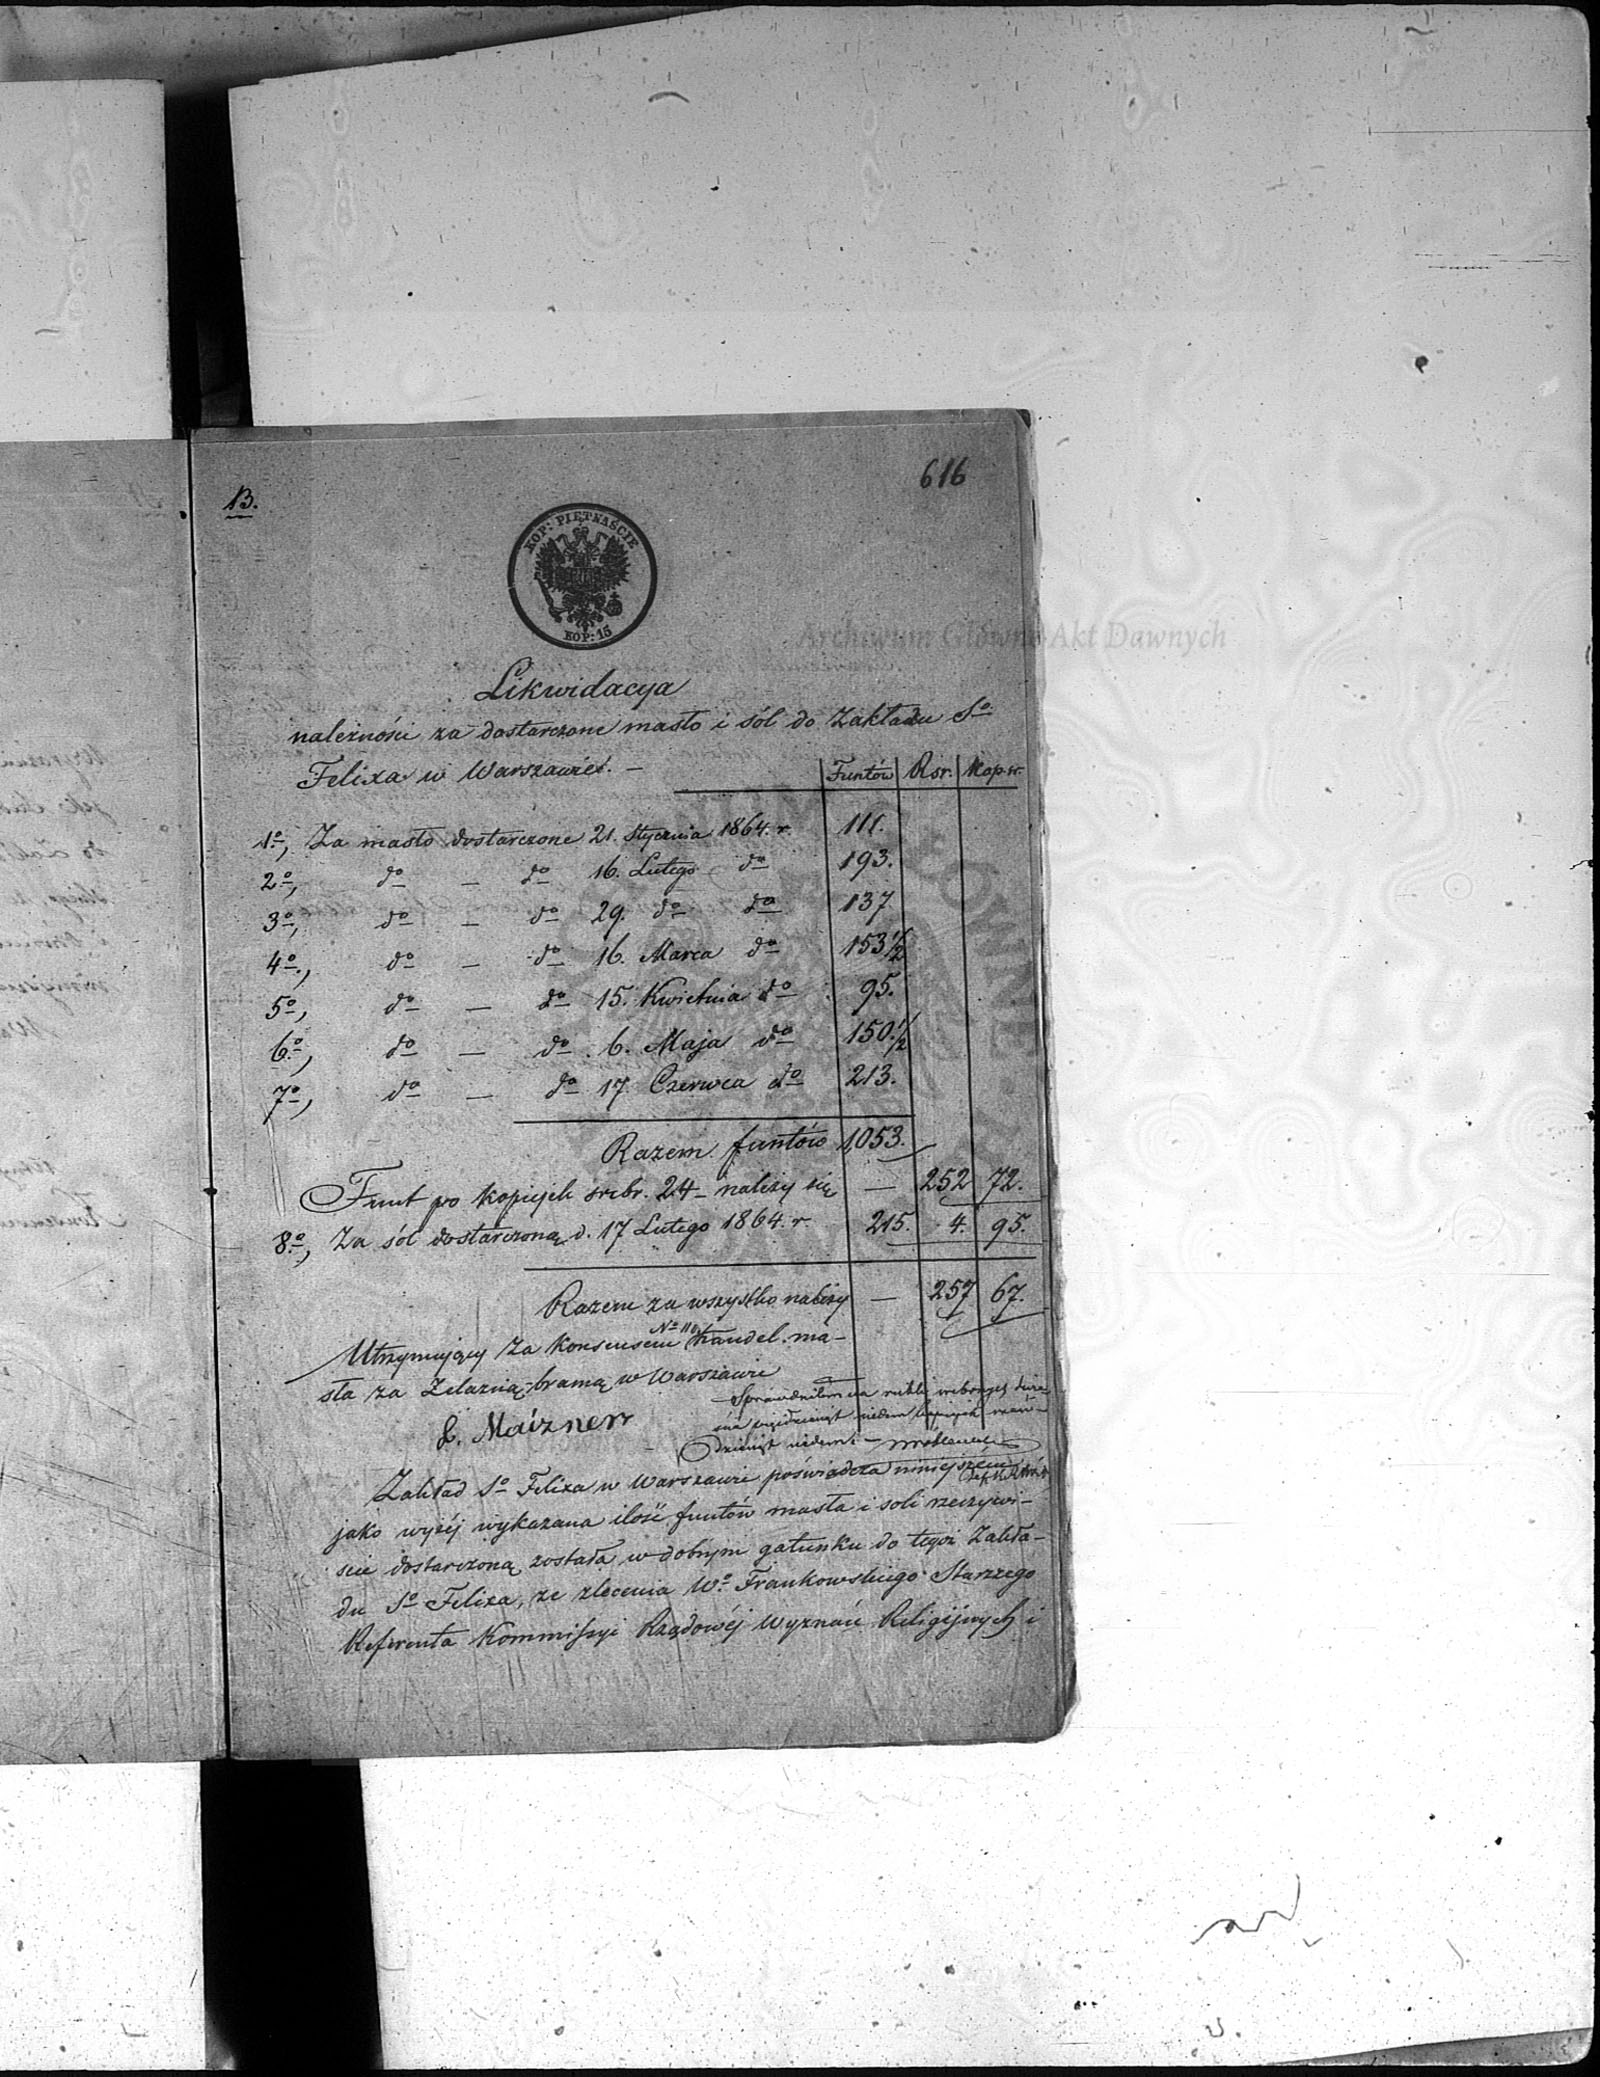 616
B.
KOP: PIĘTNAŚCIE
KOP: 15
Archiwum Główne Akt Dawnych
Likwidacya
należności za dostarczone masło i sól do Zakładu So
Felixa w Warszawie. —
Funtów Rsr. Kop. sr.
1o, Za masło dostarczone 21. Stycznia 1864. r. 111.
2o, do — do 16. Lutego do 193.
3o, do — do 29. do do 137
4o, do — do 16. Marca do 153 1/2
5o, do — do 15. Kwietnia do 95.
6o, do — do 6. Maja do 150. 1/2
7o, do — do 17 Czerwca do 213.
Razem funtów 1,053.
Funt po kopiejek srebr. 24 należy się — 252 72.
8o, Za sól dostarczoną d. 17 Lutego 1864. r. 215. 4. 95.
Razem za wszystko należy — 257 67.
Utrzymujący za konsensem No handel ma-
sła za Żelazną-bramą w Warszawie
Sprawdziłem na rubli srebrnych dwie-
ście pięćdziesiąt siedem kopiejek sześć-
dziesiąt siedem. —
J. Maizner
Zakład So Felixa w Warszawie poświadcza niniejszém
jako wyżéj wykazana ilość funtów masła i soli rzeczywi-
ście dostarczoną została w dobrym gatunku do tegoż Zakła-
du So Felixa, ze zlecenia Wo Frankowskiego Starszego
Referenta Kommissyi Rządowéj Wyznań Religijnych i